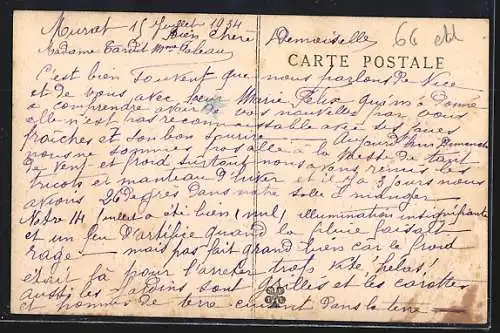 Murat 15 Juillet 1934
66
Bien Chère Demoiselle
Madame Tardit Mme
CARTE POSTALE
C'est bien souvent que nous parlons De Nice
et de vous avec Soeur Marie Félix qui m'a Donné
a comprendre avoir de vos nouvelles par vous
elle n'est pas reconnaissable avec ses joues
fraîches et son bon sourire. Aujourd'hui Dimanche
nous ne sommes pas allé à la Messe de tant
De vent et froid surtout nous avons remis les
tricots et manteau D'hiver et il y a 3 jours nous
avions 26 degrés Dans notre salle à manger
Notre 14 Juillet a été bien (nul) illumination insignifiante
et un feu D'artifice quand la pluie faisait
rage — mais pas fait grand bien car le froid
était là pour l'arrêter trop vite hélas!
aussi les jardins sont grillés et les carottes
et pommes de terre cuisent Dans la terre —